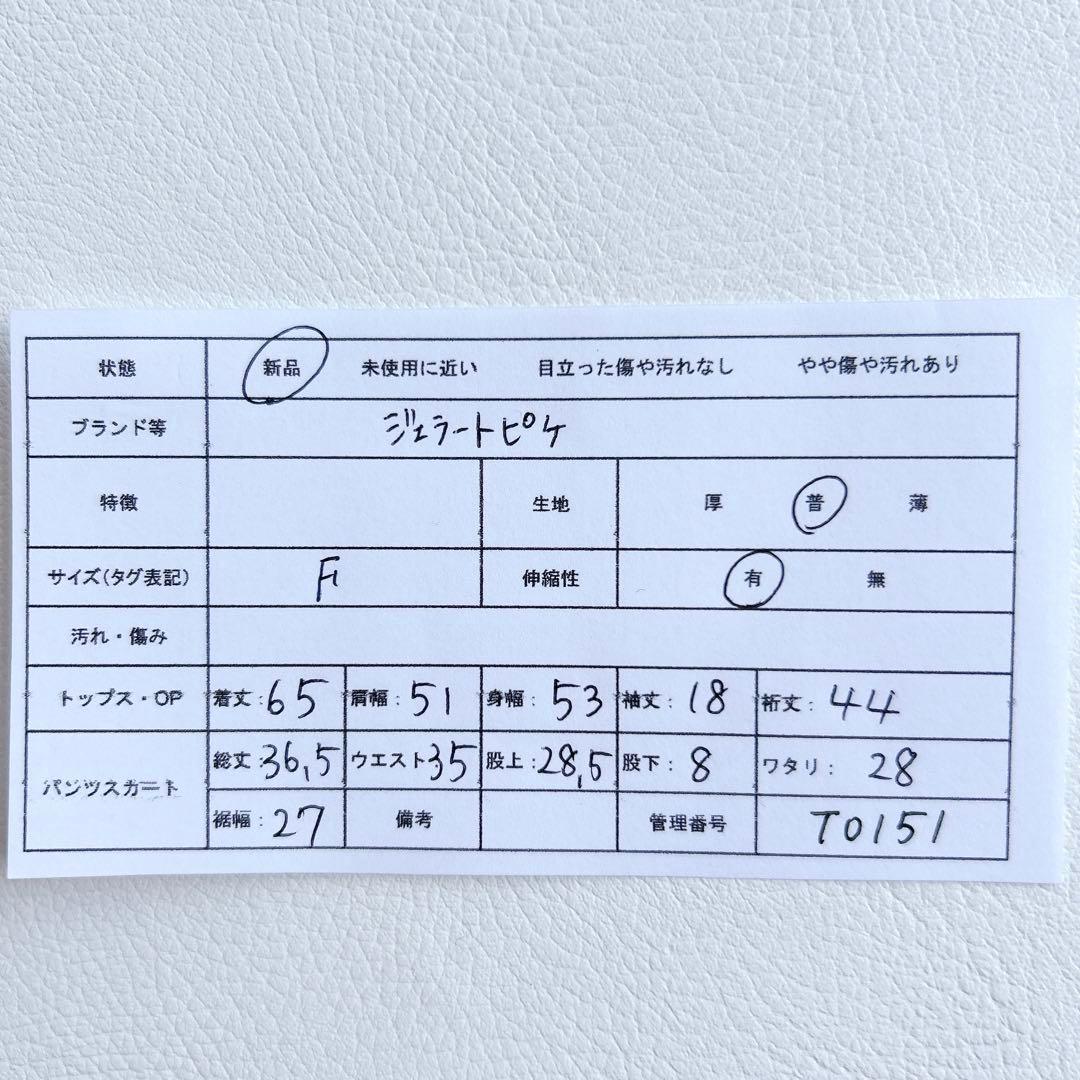 状態 新品 未使用に近い 目立った傷や汚れなし やや傷や汚れあり
ブランド等 ジェラートピケ
特徴 生地 厚 普 薄
サイズ(タグ表記) F 伸縮性 有 無
汚れ・傷み
トップス・OP 着丈:65 肩幅:51 身幅:53 袖丈:18 裄丈:44
パンツスカート 総丈:36,5 ウエスト35 股上:28,5 股下:8 ワタリ:28
裾幅:27 備考 管理番号 T0151